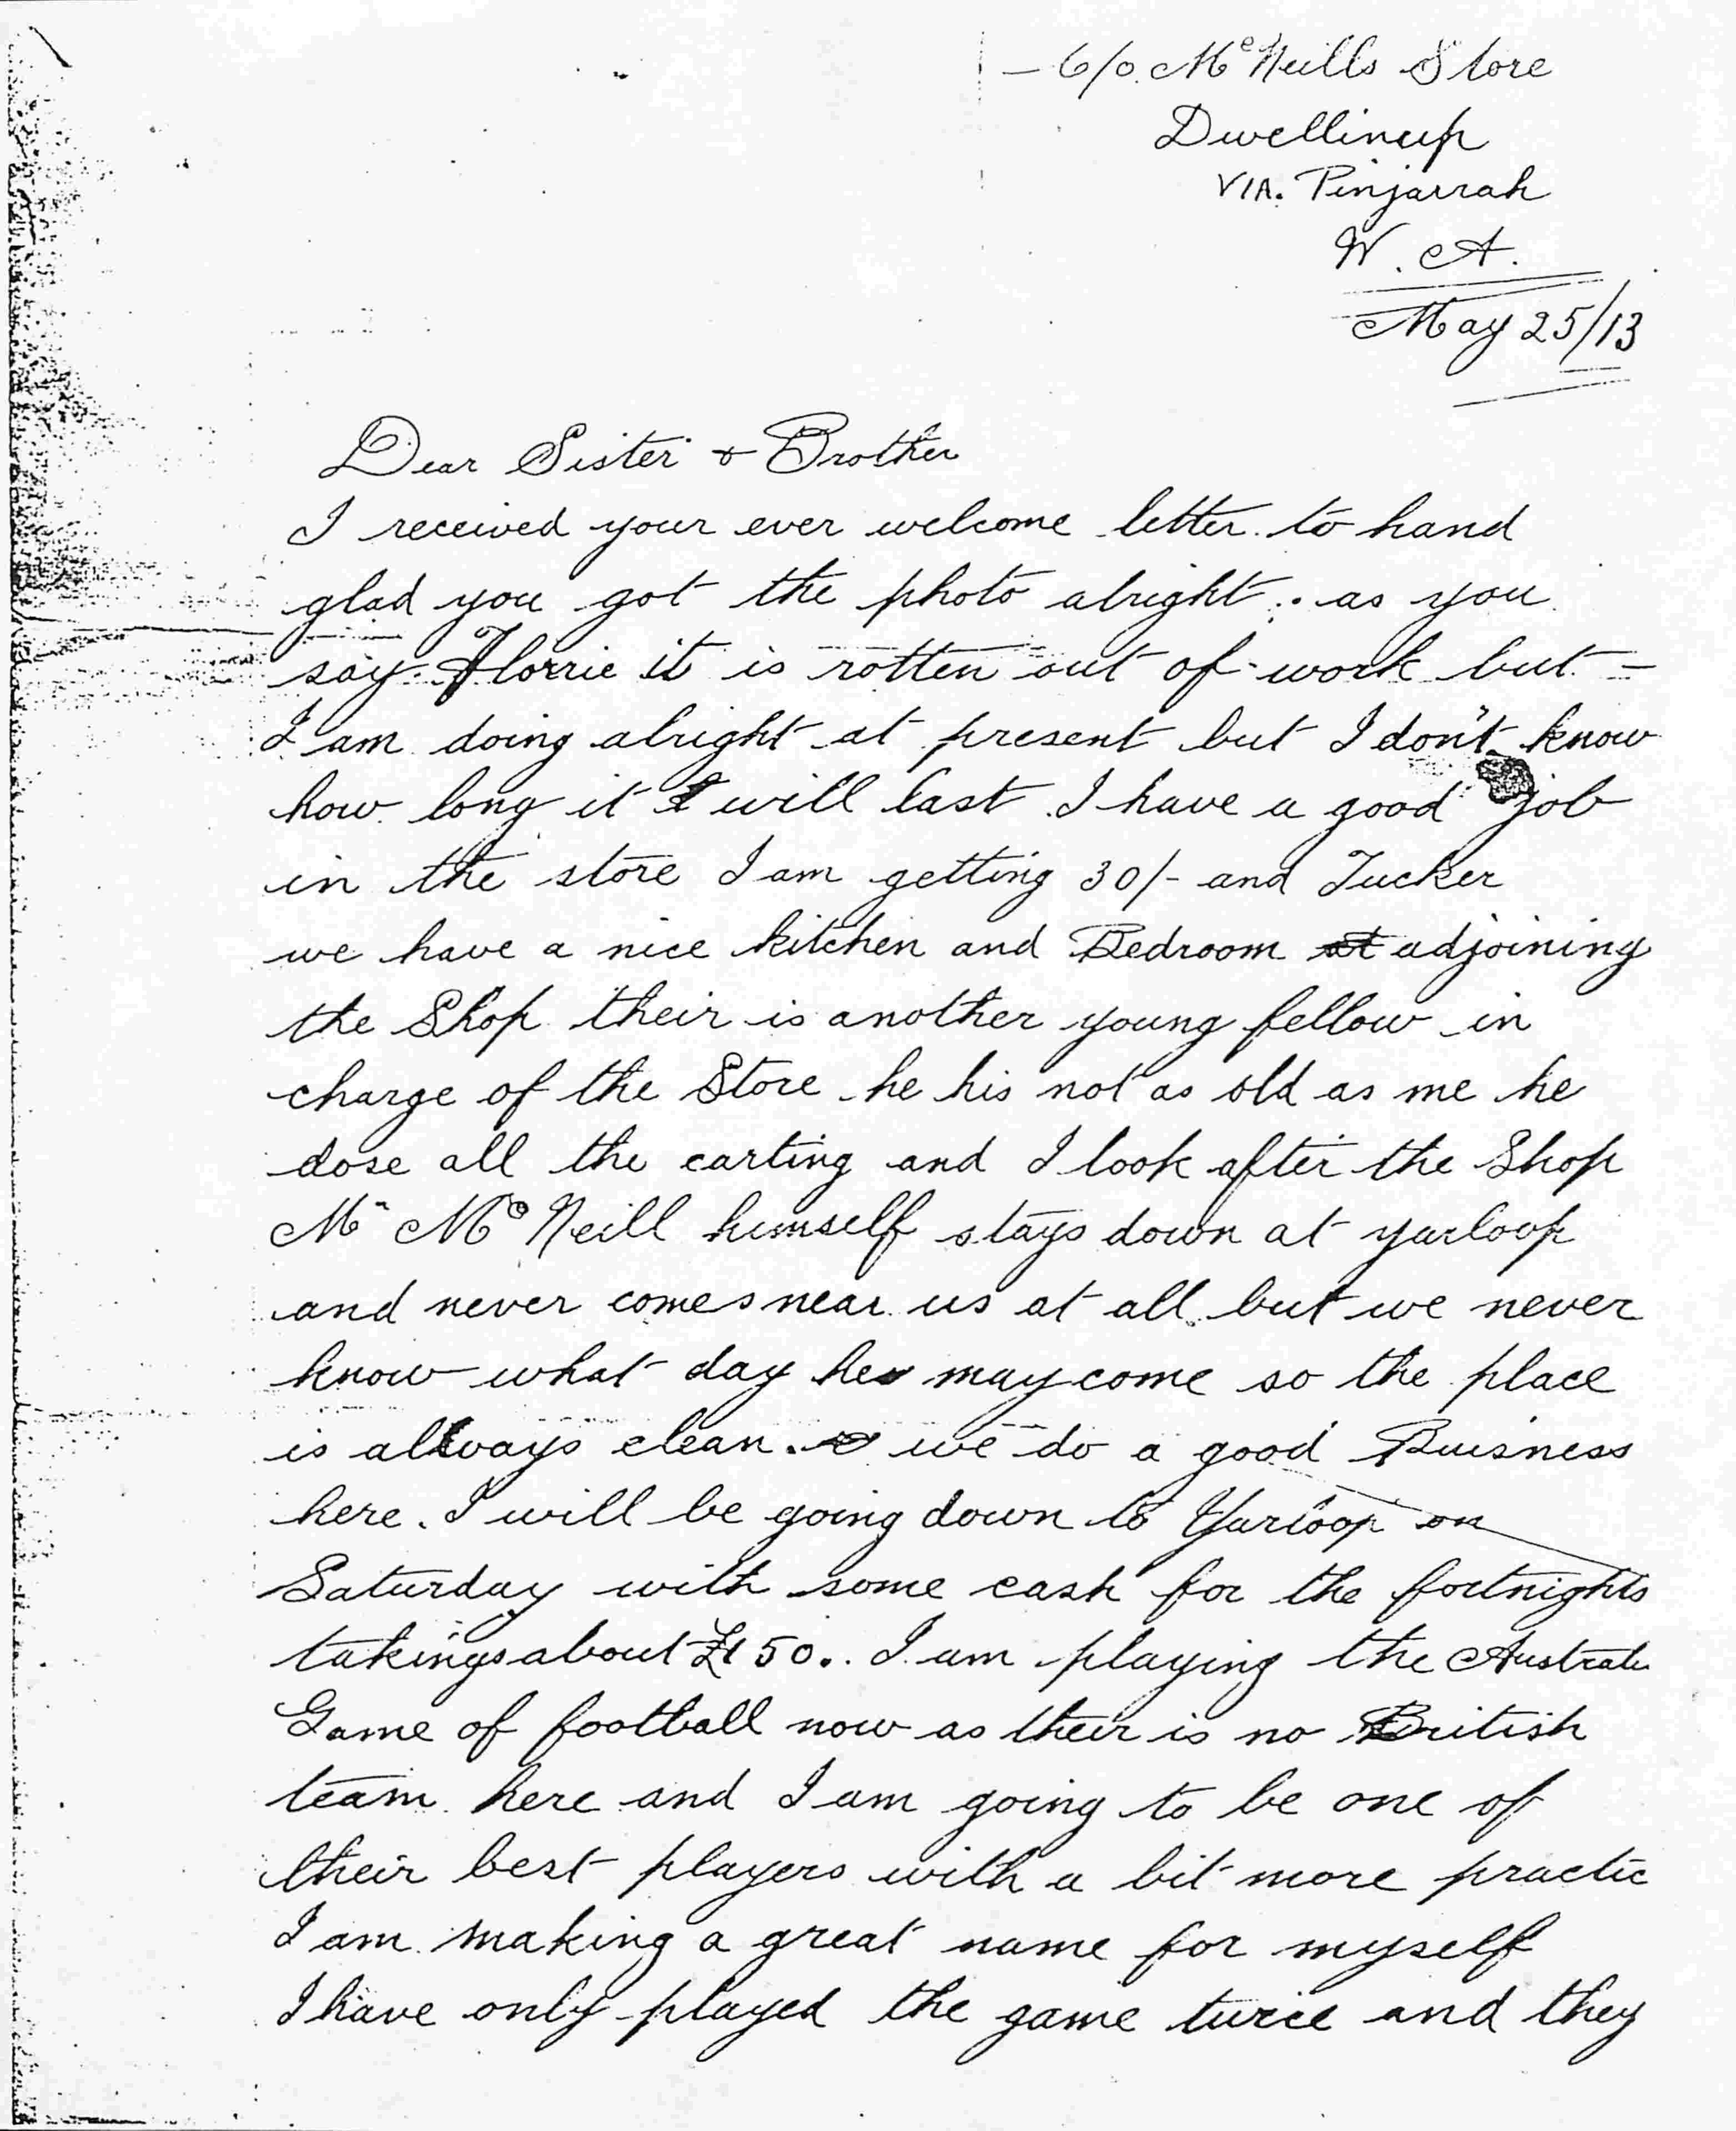 c/o. McNeills Store
Dwellinup
VIA. Pinjarrah
W. A.
May 25/13
Dear Sister & Brother
I received your ever welcome letter to hand
glad you got the photo alright. as you
say Florrie it is rotten out of work but
I am doing alright at present but I don't know
how long it will last. I have a good job
in the store I am getting 30/- and Tucker
we have a nice kitchen and Bedroom adjoining
the Shop their is another young fellow in
charge of the Store he his not as old as me he
dose all the carting and I look after the Shop
Mr McNeill himself stays down at yarloop
and never comes near us at all but we never
know what day he may come so the place
is allways clean. we do a good Buisness
here. I will be going down to Yarloop on
Saturday with some cash for the fortnights
takings about £150.. I am playing the
Game of football now as their is no British
team here and I am going to be one of
their best players with a bit more practic
I am making a great name for myself
I have only played the game twice and they